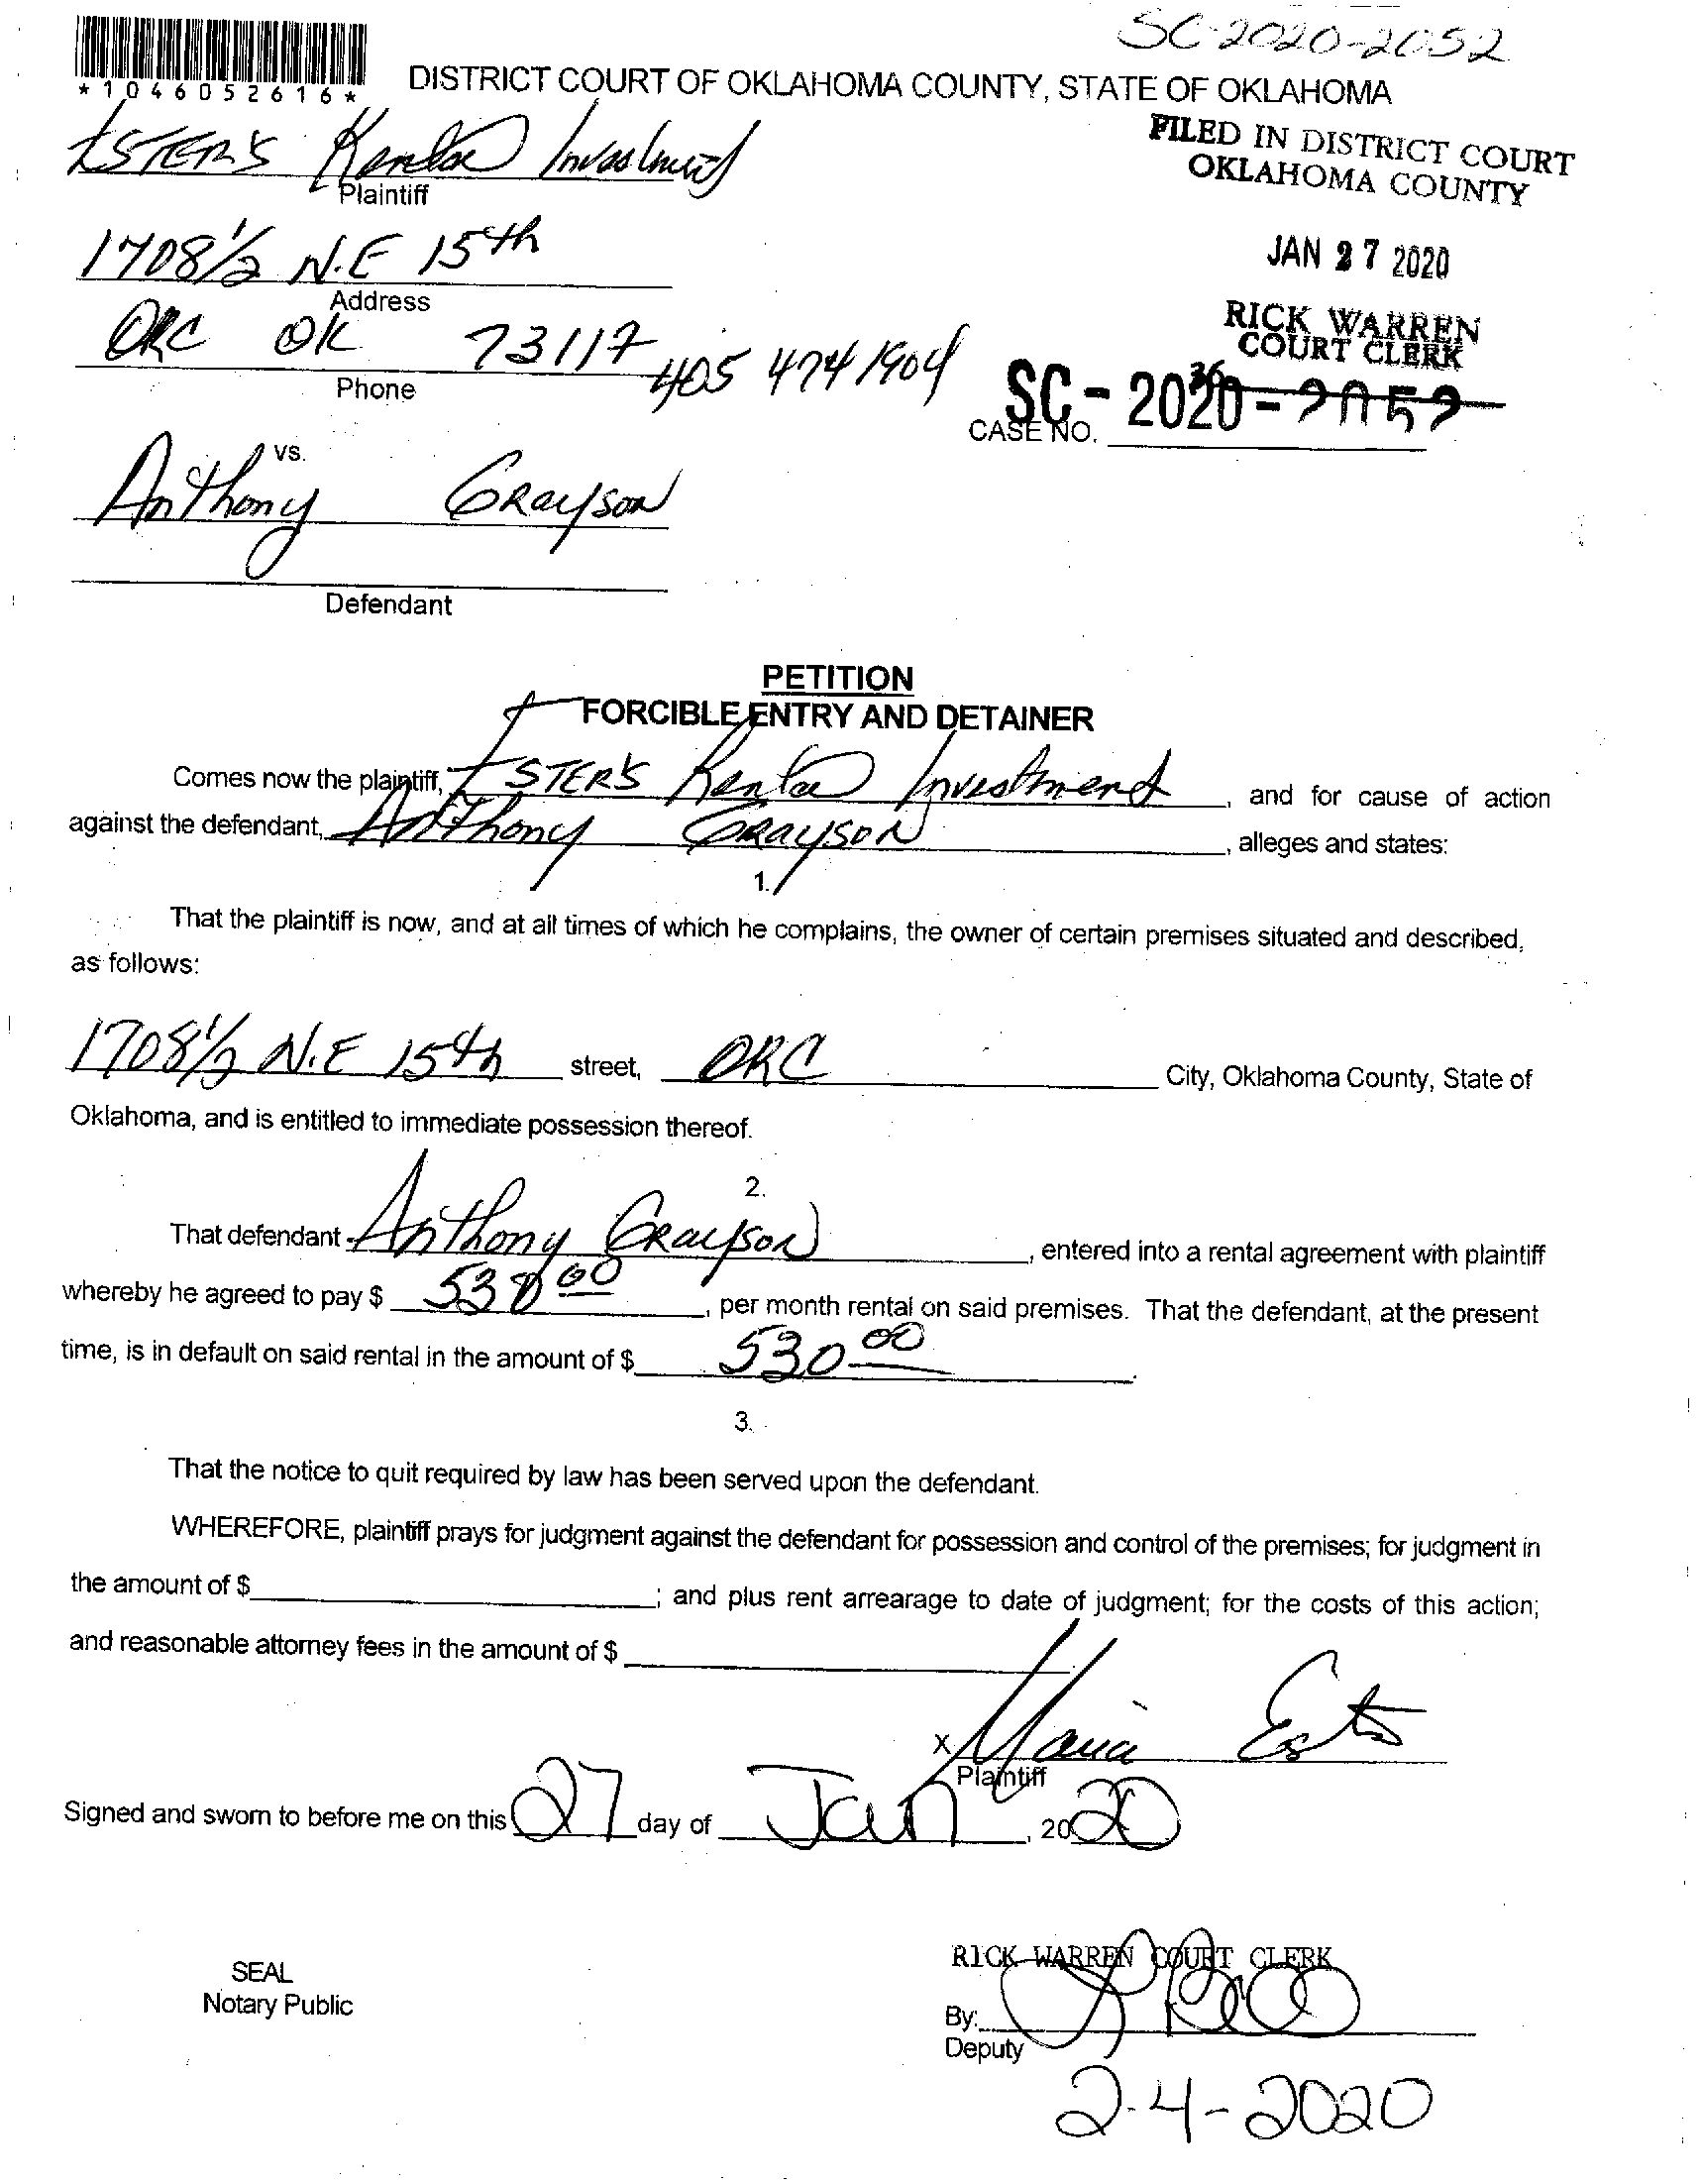 SC-2020-2052
*1046052616*
DISTRICT COURT OF OKLAHOMA COUNTY, STATE OF OKLAHOMA
FILED IN DISTRICT COURT
OKLAHOMA COUNTY
ESTER'S Rental Investment
Plaintiff
1708 1/2 N.E 15th
Address
JAN 27 2020
RICK WARREN
COURT CLERK
OKC OK 73117 405 474 1904
Phone
36
SC - 2020 - 2052
CASE NO.
vs.
Anthony GRaySON
Defendant
PETITION
FORCIBLE ENTRY AND DETAINER
Comes now the plaintiff, ESTER'S Rental Investment, and for cause of action
against the defendant, Anthony GRAYSON, alleges and states:
1.
That the plaintiff is now, and at all times of which he complains, the owner of certain premises situated and described,
as follows:
1708 1/2 N.E 15th street, OKC City, Oklahoma County, State of
Oklahoma, and is entitled to immediate possession thereof.
2.
That defendant Anthony GRaySON, entered into a rental agreement with plaintiff
whereby he agreed to pay $ 530 00, per month rental on said premises. That the defendant, at the present
time, is in default on said rental in the amount of $ 530 00.
3.
That the notice to quit required by law has been served upon the defendant.
WHEREFORE, plaintiff prays for judgment against the defendant for possession and control of the premises; for judgment in
the amount of $ ; and plus rent arrearage to date of judgment; for the costs of this action;
and reasonable attorney fees in the amount of $
x Maria Ester
Plaintiff
Signed and sworn to before me on this 27 day of Jan, 2020
SEAL
Notary Public
RICK WARREN COURT CLERK
By:
Deputy
2-4-2020